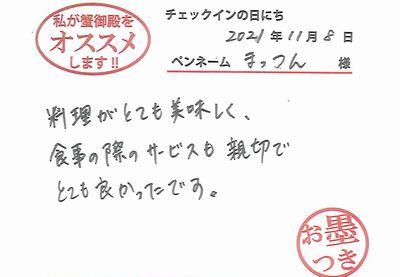 私が蟹御殿を
オススメ
します!!
チェックインの日にち
2021年11月8日
ペンネーム まっつん 様
料理がとても美味しく、
食事の際のサービスも親切で
とても良かったです。
お墨
つき